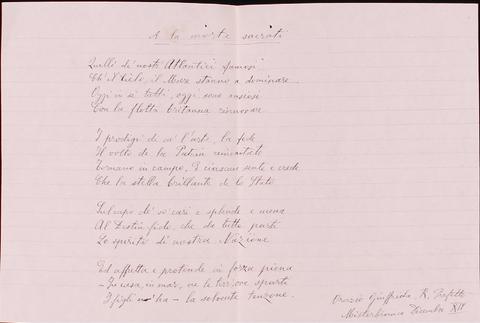 A la morte sacrati
Quelli di nostri Atlantici famosi
Ch'il Cielo, il Mare stanno a dominare
Oggi in sè tutti, oggi sono ansiosi
Con la flotta britanna rinnovare
I prodigi di l'arte, la fede
Il volto de la Patria
Tornano in campo, E ciascun sente e crede
Che la stella brillante de lo Stato
Sul capo de' sì cari e splende e mena
Al Destin fido, che da tutte parti
Lo spirito di nostra Nazione
Ed affretta e pretende in forza piena
In casa, in mar, ne le sparte
I figli la solvente tenzone.
Orazio Giuffrida, R.
Misterbianco Dicembre XIV